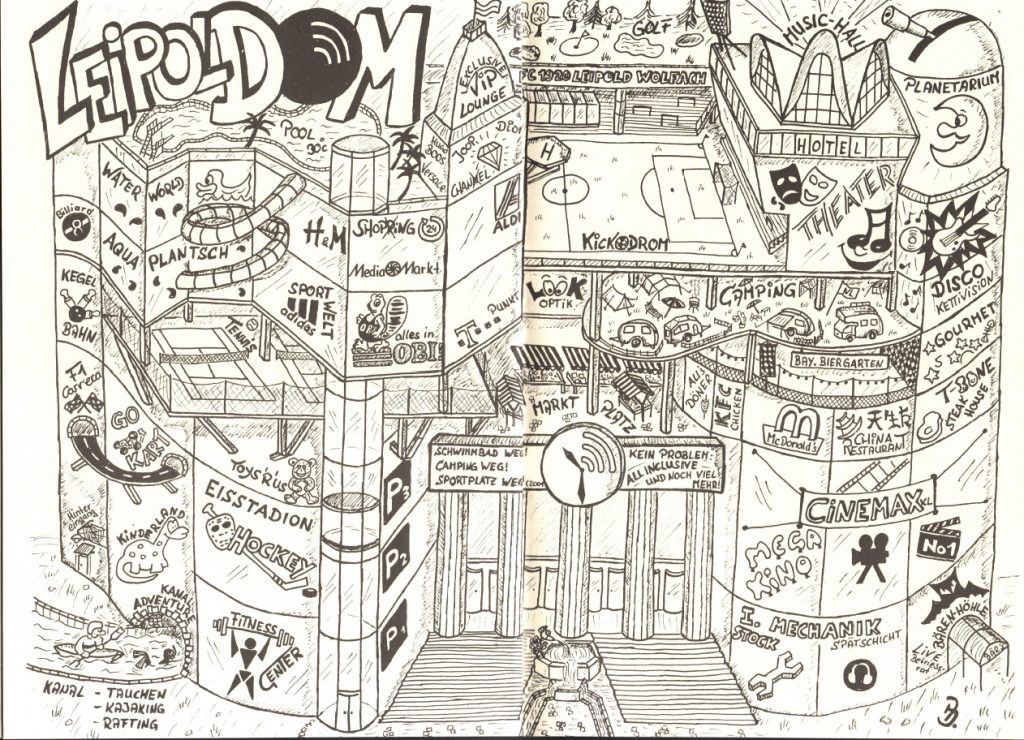 LEIPOLDOOM
POOL
30C
EXCLUSIVE
VIP
LOUNGE
HUGO
BOSS
JOOP!
Dior
Versace
CHANNEL
ALDI
GOLF
FC 1920 LEIPOLD WOLFACH
H
KICK DROM
MUSIC-HALL
HOTEL
THEATER
PLANETARIUM
WATER WORLD
AQUA PLANTSCH
Billiard
8
KEGEL
BAHN
F1
Carrera
GO
KART
H&M
SHOPRING 24
Media Markt
SPORT
WELT
adidas
alles in..
OBI
T... PUNKT
TENNIS
LOOK
OPTIK
CAMPING
DISCO
KETTIVISION
GOURMET
SOUND
T-BONE
STEAK HOUSE
BAY. BIERGARTEN
ALIS
DÖNER
KFC
CHICKEN
McDonald's
CHINA
RESTAURANT
MARKT PLATZ
SCHWIMMBAD WEG!
CAMPING WEG!
SPORTPLATZ WEG!
KEIN PROBLEM:
ALL INCLUSIVE -
UND NOCH VIEL
MEHR!
TOYS'R'US
EISSTADION
HOCKEY
P3
P2
P1
CINEMAXXL
MEGA
KINO
No1
Hinter
eingang
KINDERLAND
KANAL
ADVENTURE
FITNESS
CENTER
I. MECHANIK
STOCK
SPÄTSCHICHT
BÄREN-HÖHLE
LIVE
Betriebs
rat
BÄR
KANAL - TAUCHEN
- KAJAKING
- RAFTING